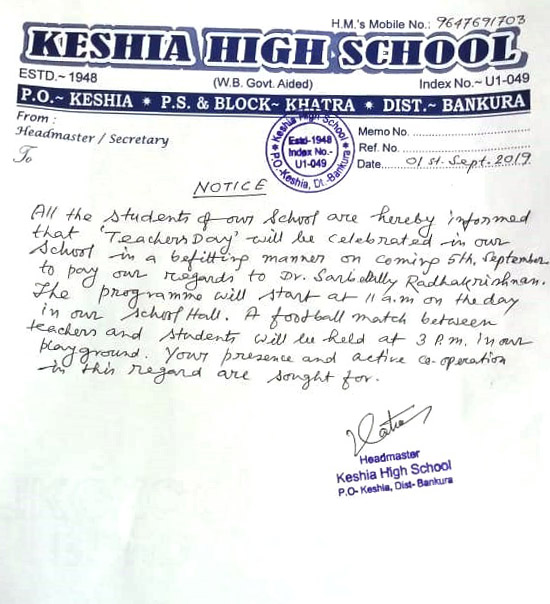 H.M.'s Mobile No.: 9647691703
KESHIA HIGH SCHOOL
ESTD.~ 1948 (W.B. Govt. Aided) Index No.~ U1-049
P.O.~ KESHIA * P.S. & BLOCK~ KHATRA * DIST.~ BANKURA
From :
Headmaster / Secretary
To
Keshia High School
Estd-1948
Index No.-
U1-049
P.O-Keshia, Dt-Bankura
Memo No.
Ref. No.
Date 01st. Sept. 2019
NOTICE
All the students of our School are hereby informed
that 'Teachers Day' will be celebrated in our
School in a befitting manner on coming 5th, September
to pay our regards to Dr. Radhakrishnan.
The programme will start at 11 a.m on the day
in our School Hall. A football match between
teachers and students will be held at 3 P.m. in our
playground. Your presence and active co-operation
in this regard are sought for.
Headmaster
Keshia High School
P.O- Keshia, Dist- Bankura